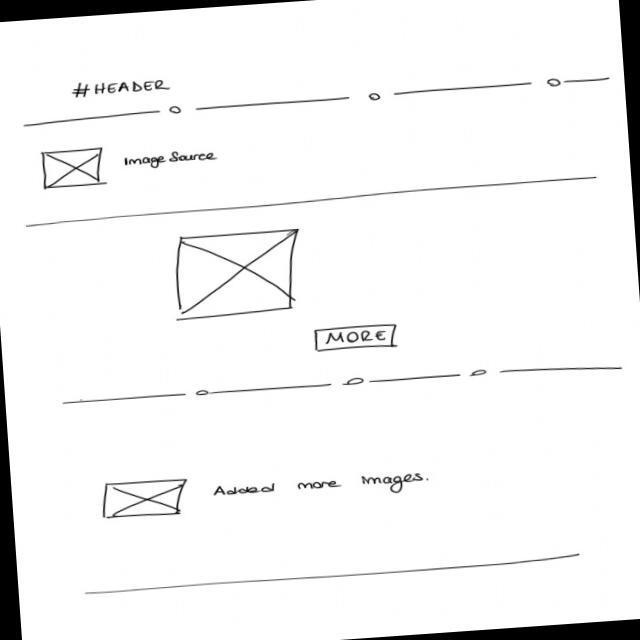 #HEADER
Image Source
MORE
Added more images.